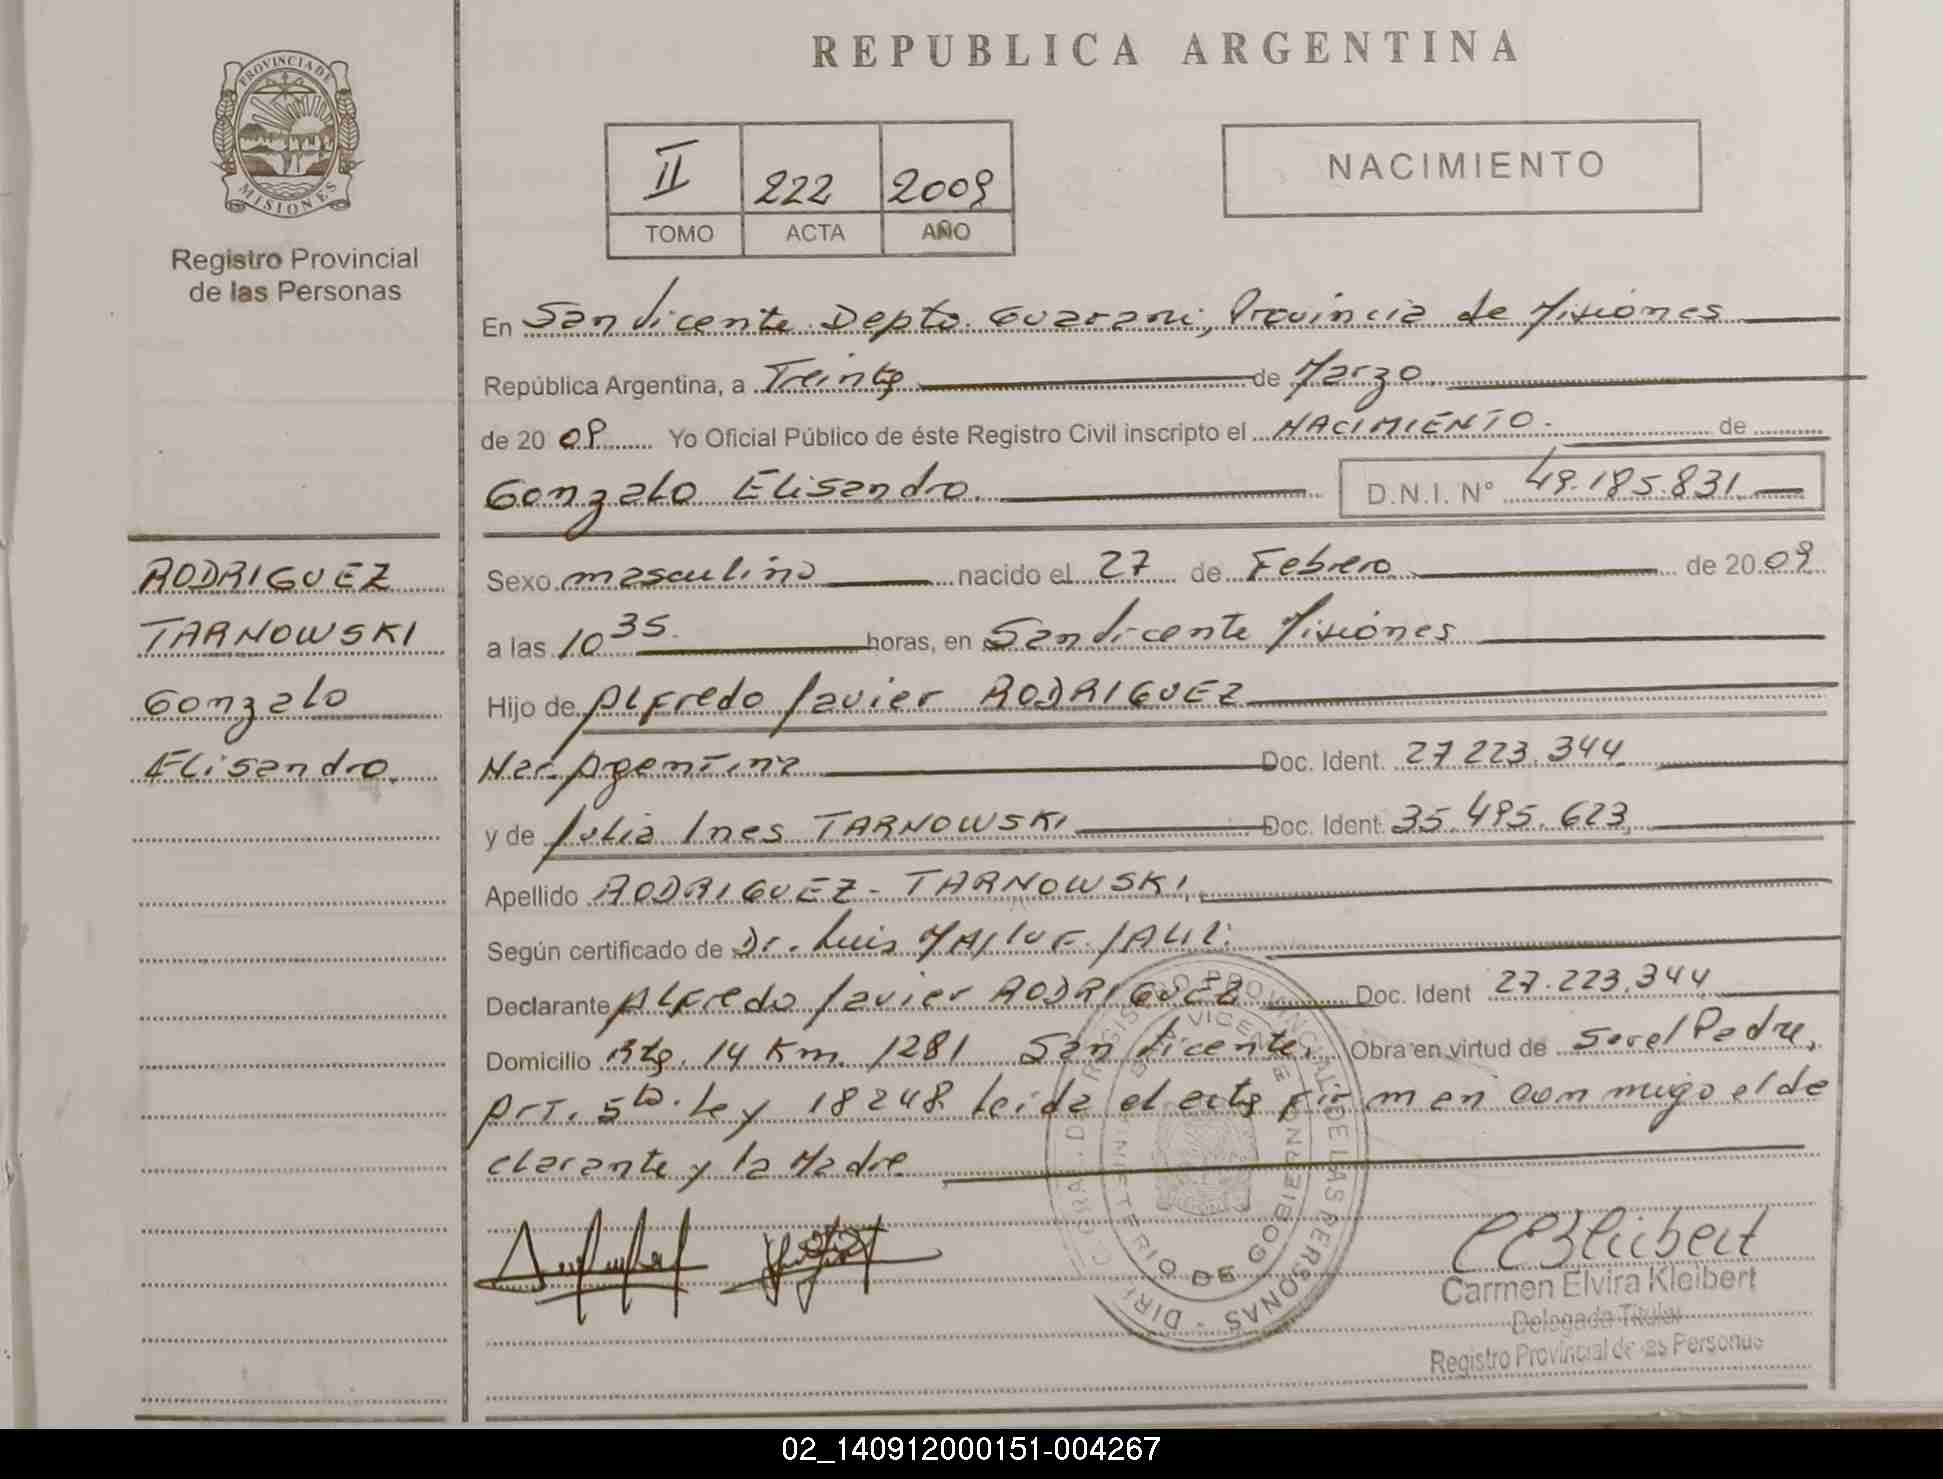 REPUBLICA ARGENTINA
PROVINCIA DE
MISIONES
Registro Provincial
de las Personas
II 222 2009
TOMO ACTA AÑO
NACIMIENTO
En San Vicente Depto Guarani, Provincia de Misiones
República Argentina, a Treinta de Marzo
de 20 09 Yo Oficial Público de éste Registro Civil inscripto el NACIMIENTO. de
Gonzalo Elisandro. D.N.I. N° 49.185.831
RODRIGUEZ
TARNOWSKI
Gonzalo
Elisandro.
Sexo masculino nacido el 27 de Febrero de 2009
a las 10 35. horas, en San Vicente Misiones
Hijo de Alfredo Javier RODRIGUEZ
Nac. Argentina Doc. Ident. 27 223.344
y de Julia Ines TARNOWSKI Doc. Ident. 35.495.623
Apellido RODRIGUEZ - TARNOWSKI
Según certificado de Dr. Luis
Declarante Alfredo Javier RODRIGUEZ Doc. Ident 27.223.344
Domicilio Rta. 14 Km. 1281 San Vicente. Obra en virtud de Sor el Padre,
Art. 5to. Ley 18248 Leida el acta firman conmigo el de
clarante y la Madre
Carmen Elvira Kleibert
Delegada Titular
Registro Provincial de las Personas
02_140912000151-004267